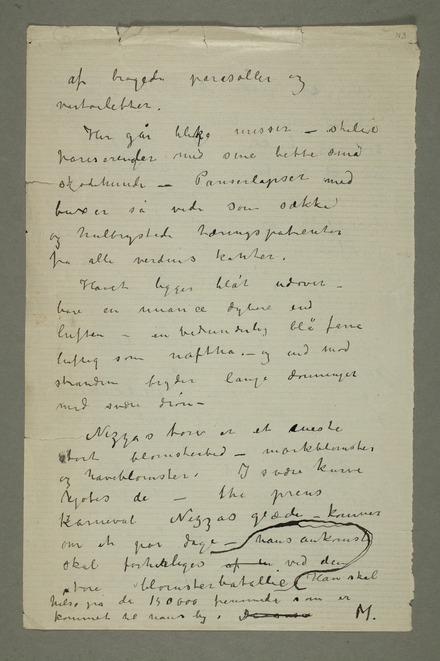 af brogede parasoller og
vertoiletter.
Her går blege misser – skeler
pariserender med sine bette små
skjødehunde – Pariserlapser med
buxer så vide som sække
og hulbrystede tæringspatienter
fra alle verdens kanter.
Havet ligger blåt udover –
bare en nuance dybere end
luften – en vidunderlig blå farve
luftig som naftha – og ind mod
stranden bryder lange dønninger
med svære drøn –
Nizzas torv er et eneste
stort blomsterbed – markblomster
og haveblomster. I svære kurve
kjøbes de – thi prins
Karneval Nizzas glæde – kommer
om et par dage – hans ankomst
skal forherliges ved den
store blomsterbatallie Han skal
hilse på de 150000 fremmede som er
kommet til hans by. M.
N3